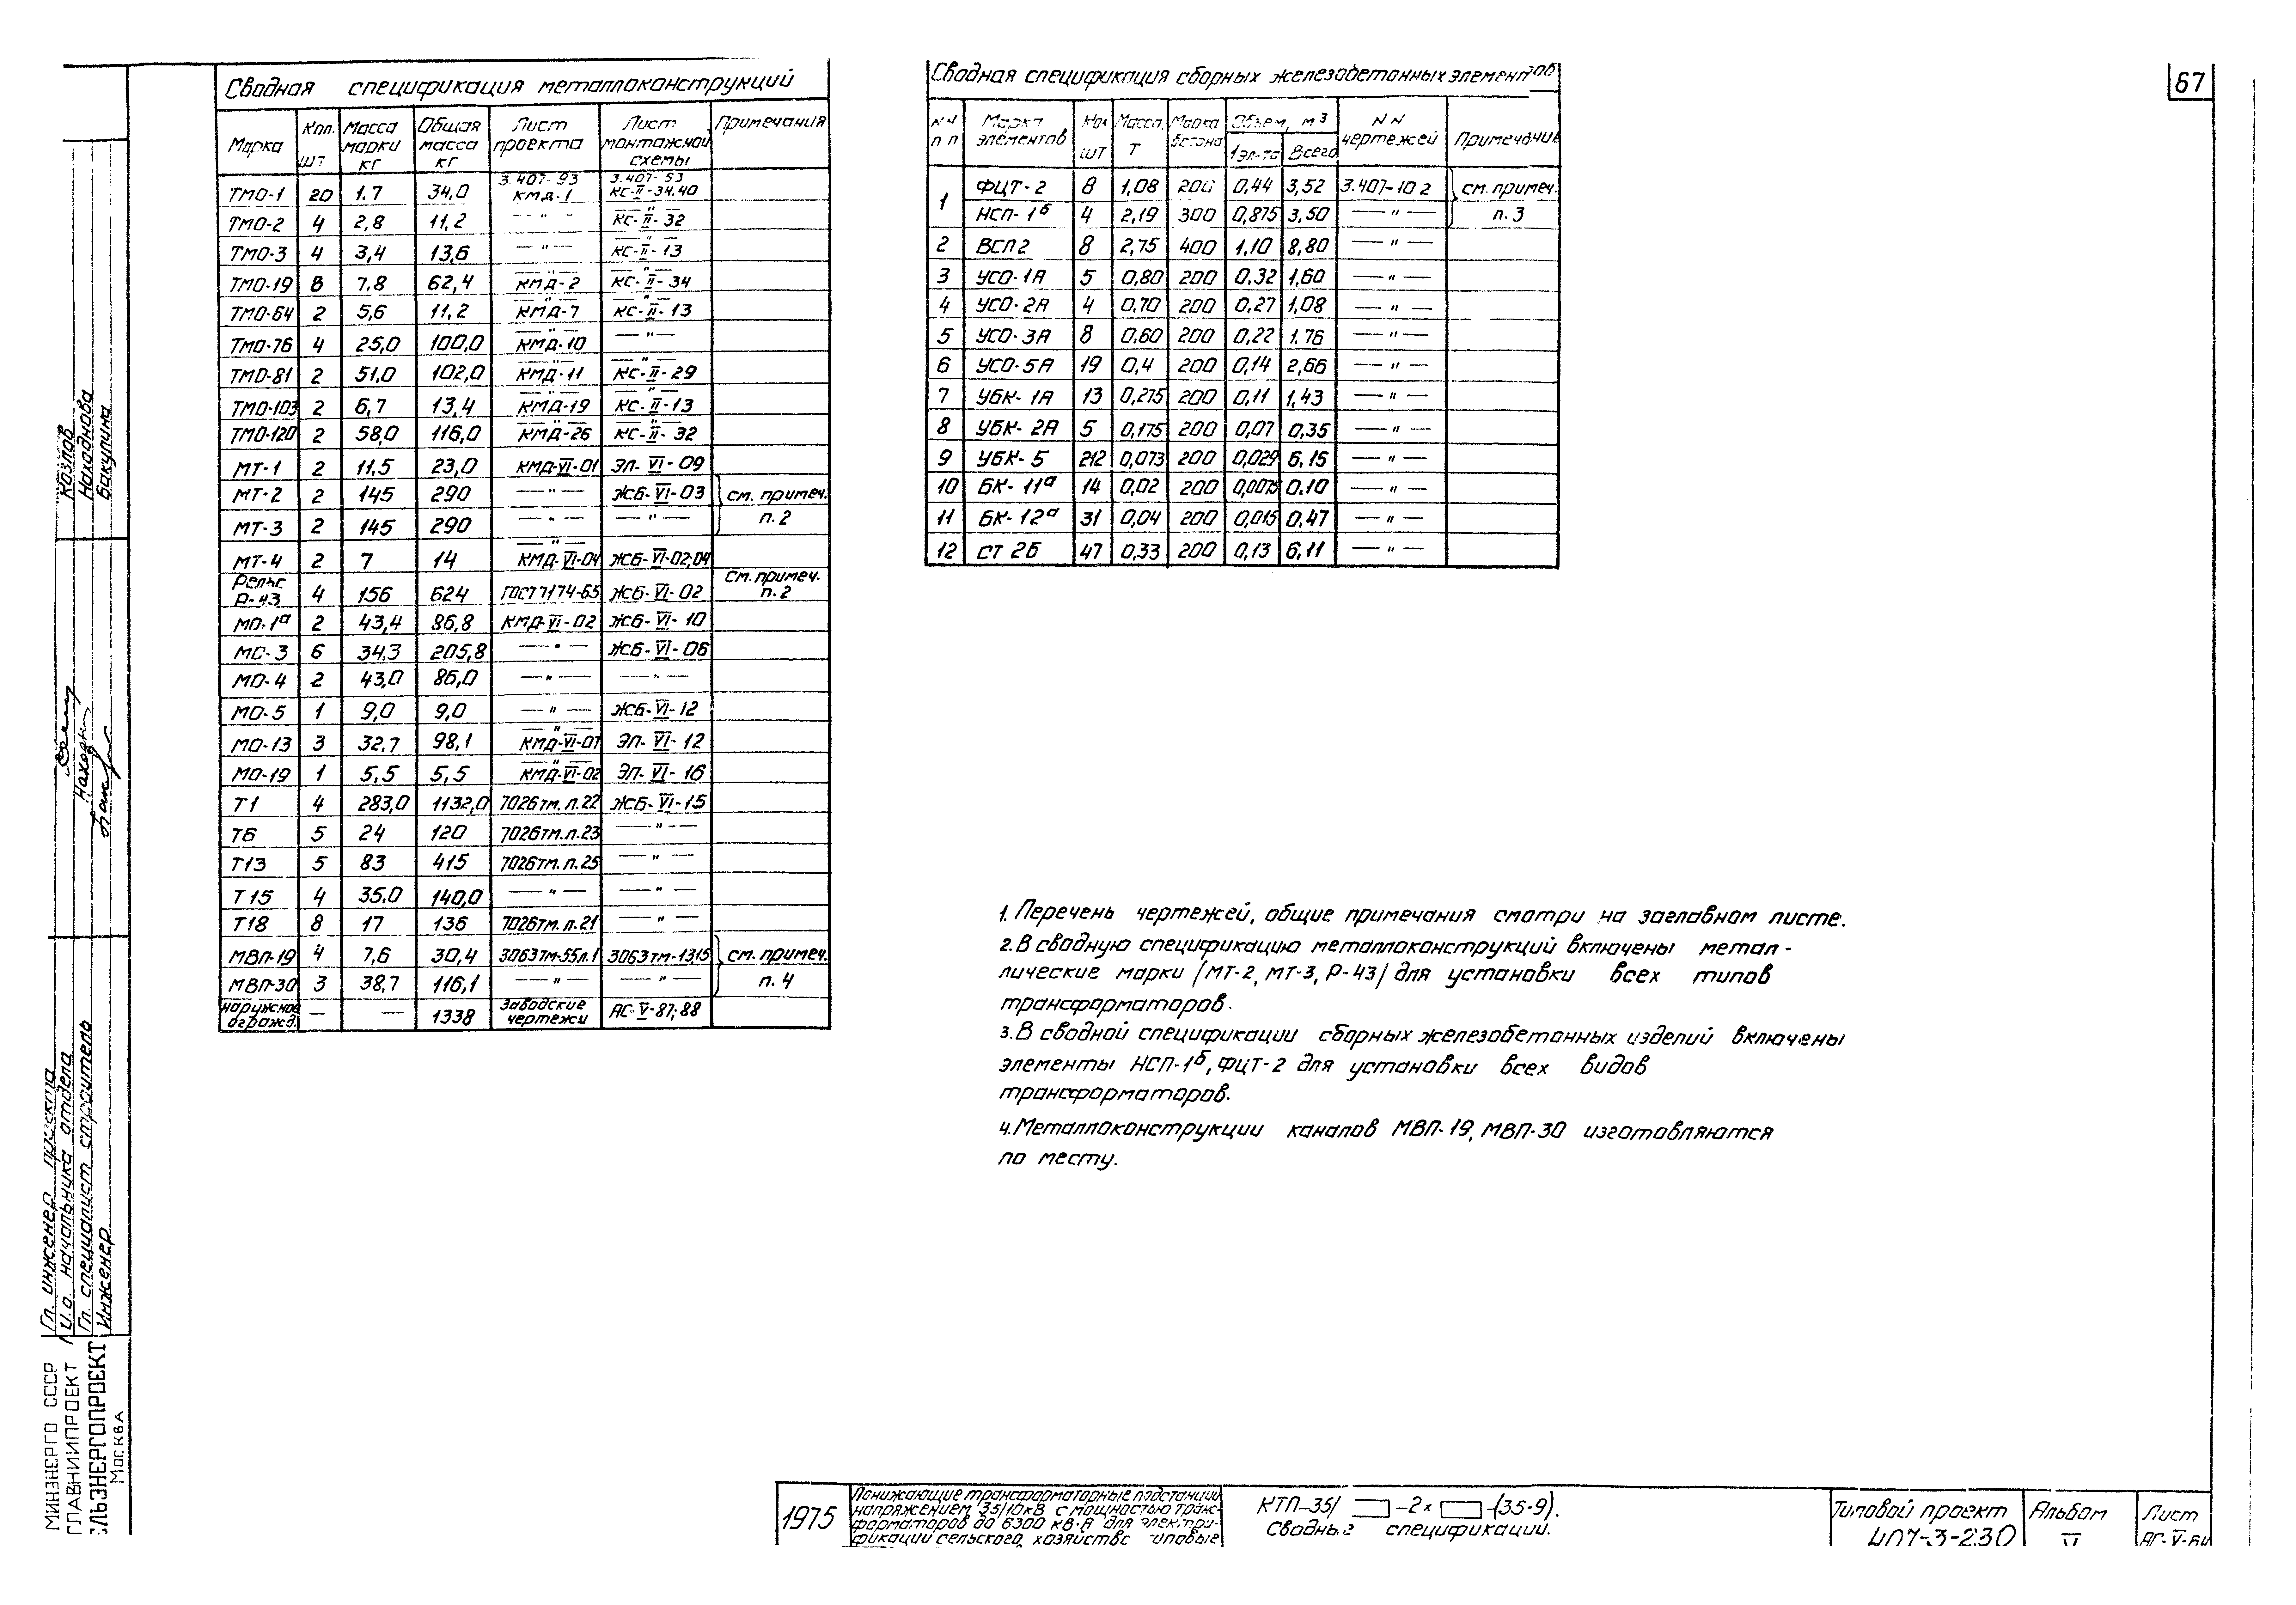 67
Сводная спецификация металлоконструкций
Марка Кол. шт Масса марки кг Общая масса кг Лист проекта Лист монтажной схемы Примечания
ТМО-1 20 1.7 34,0 3.407-93 КМД-1 КС-II-34,40
ТМО-2 4 2,8 11,2 — " — — " — КС-II-32
ТМО-3 4 3,4 13,6 — " — — " — КС-II-13
ТМО-19 8 7,8 62,4 — " — КМД-2 — " — КС-II-34
ТМО-64 2 5,6 11,2 — " — КМД-7 — " — КС-II-13
ТМО-76 4 25,0 100,0 — " — КМД-10 — " —
ТМО-81 2 51,0 102,0 — " — КМД-11 — " — КС-II-29
ТМО-103 2 6,7 13,4 — " — КМД-19 — " — КС-II-13
ТМО-120 2 58,0 116,0 — " — КМД-26 — " — КС-II-32
МТ-1 2 11,5 23,0 КМД-VI-01 ЭЛ-VI-09
МТ-2 2 145 290 — " — ЖСБ-VI-03 см. примеч.
МТ-3 2 145 290 — " — — " — п. 2
МТ-4 2 7 14 — " — КМД-VI-04 ЖСБ-VI-02;04
Рельс Р-43 4 156 624 ГОСТ7174-65 ЖСБ-VI-02 см. примеч. п. 2
МО-1а 2 43,4 86,8 КМД-VI-02 ЖСБ-VI-10
МО-3 6 34,3 205,8 — " — ЖСБ-VI-06
МО-4 2 43,0 86,0 — " — — " —
МО-5 1 9,0 9,0 — " — ЖСБ-VI-12
МО-13 3 32,7 98,1 — " — КМД-VI-07 ЭЛ-VI-12
МО-19 1 5,5 5,5 — " — КМД-VI-02 ЭЛ-VI-16
Т1 4 283,0 1132,0 7026тм.л.22 ЖСБ-VI-15
Т6 5 24 120 7026тм.л.23 — " —
Т13 5 83 415 7026тм.л.25 — " —
Т15 4 35,0 140,0 — " — — " —
Т18 8 17 136 7026тм.л.21 — " —
МВП-19 4 7,6 30,4 3063тм-55л.1 3063тм-1315 см. примеч.
МВП-30 3 38,7 116,1 — " — — " — п. 4
наружное огражд. — — 1338 Заводские чертежи АС-V-87;88
Сводная спецификация сборных железобетонных элементов
NN п п Марка элементов Кол шт Масса, Т Марка бетона Объем, м³ 1эл-та Всего NN чертежей Примечание
1 ФЦТ-2 8 1,08 200 0,44 3,52 3.407-102 см. примеч.
НСП-1б 4 2,19 300 0,875 3,50 — " — п. 3
2 ВСП2 8 2,75 400 1,10 8,80 — " —
3 УСО-1А 5 0,80 200 0,32 1,60 — " —
4 УСО-2А 4 0,70 200 0,27 1,08 — " —
5 УСО-3А 8 0,60 200 0,22 1,76 — " —
6 УСО-5А 19 0,4 200 0,14 2,66 — " —
7 УБК-1А 13 0,275 200 0,11 1,43 — " —
8 УБК-2А 5 0,175 200 0,07 0,35 — " —
9 УБК-5 212 0,073 200 0,029 6,15 — " —
10 БК-11а 14 0,02 200 0,0075 0,10 — " —
11 БК-12а 31 0,04 200 0,015 0,47 — " —
12 СТ 2Б 47 0,33 200 0,13 6,11 — " —
1. Перечень чертежей, общие примечания смотри на заглавном листе.
2. В сводную спецификацию металлоконструкций включены метал-
лические марки (МТ-2, МТ-3, Р-43) для установки всех типов
трансформаторов.
3. В сводной спецификации сборных железобетонных изделий включены
элементы НСП-1б, ФЦТ-2 для установки всех видов
трансформаторов.
4. Металлоконструкции каналов МВП-19, МВП-30 изготовляются
по месту.
Козлов
Находнова
Бакулина
Гл. инженер проекта
И.о. начальника отдела
Гл. специалист строитель
Инженер
МИНЭНЕРГО СССР
ГЛАВНИИПРОЕКТ
СЕЛЬЭНЕРГОПРОЕКТ
Москва
1975
Понижающие трансформаторные подстанции
напряжением 35/10кВ с мощностью транс-
форматоров до 6300 кв·А для электри-
фикации сельского хозяйства типовые
КТП-35/ -2× -(35-9).
Сводные спецификации.
Типовой проект
407-3-230
Альбом
VI
Лист
АС-V-64